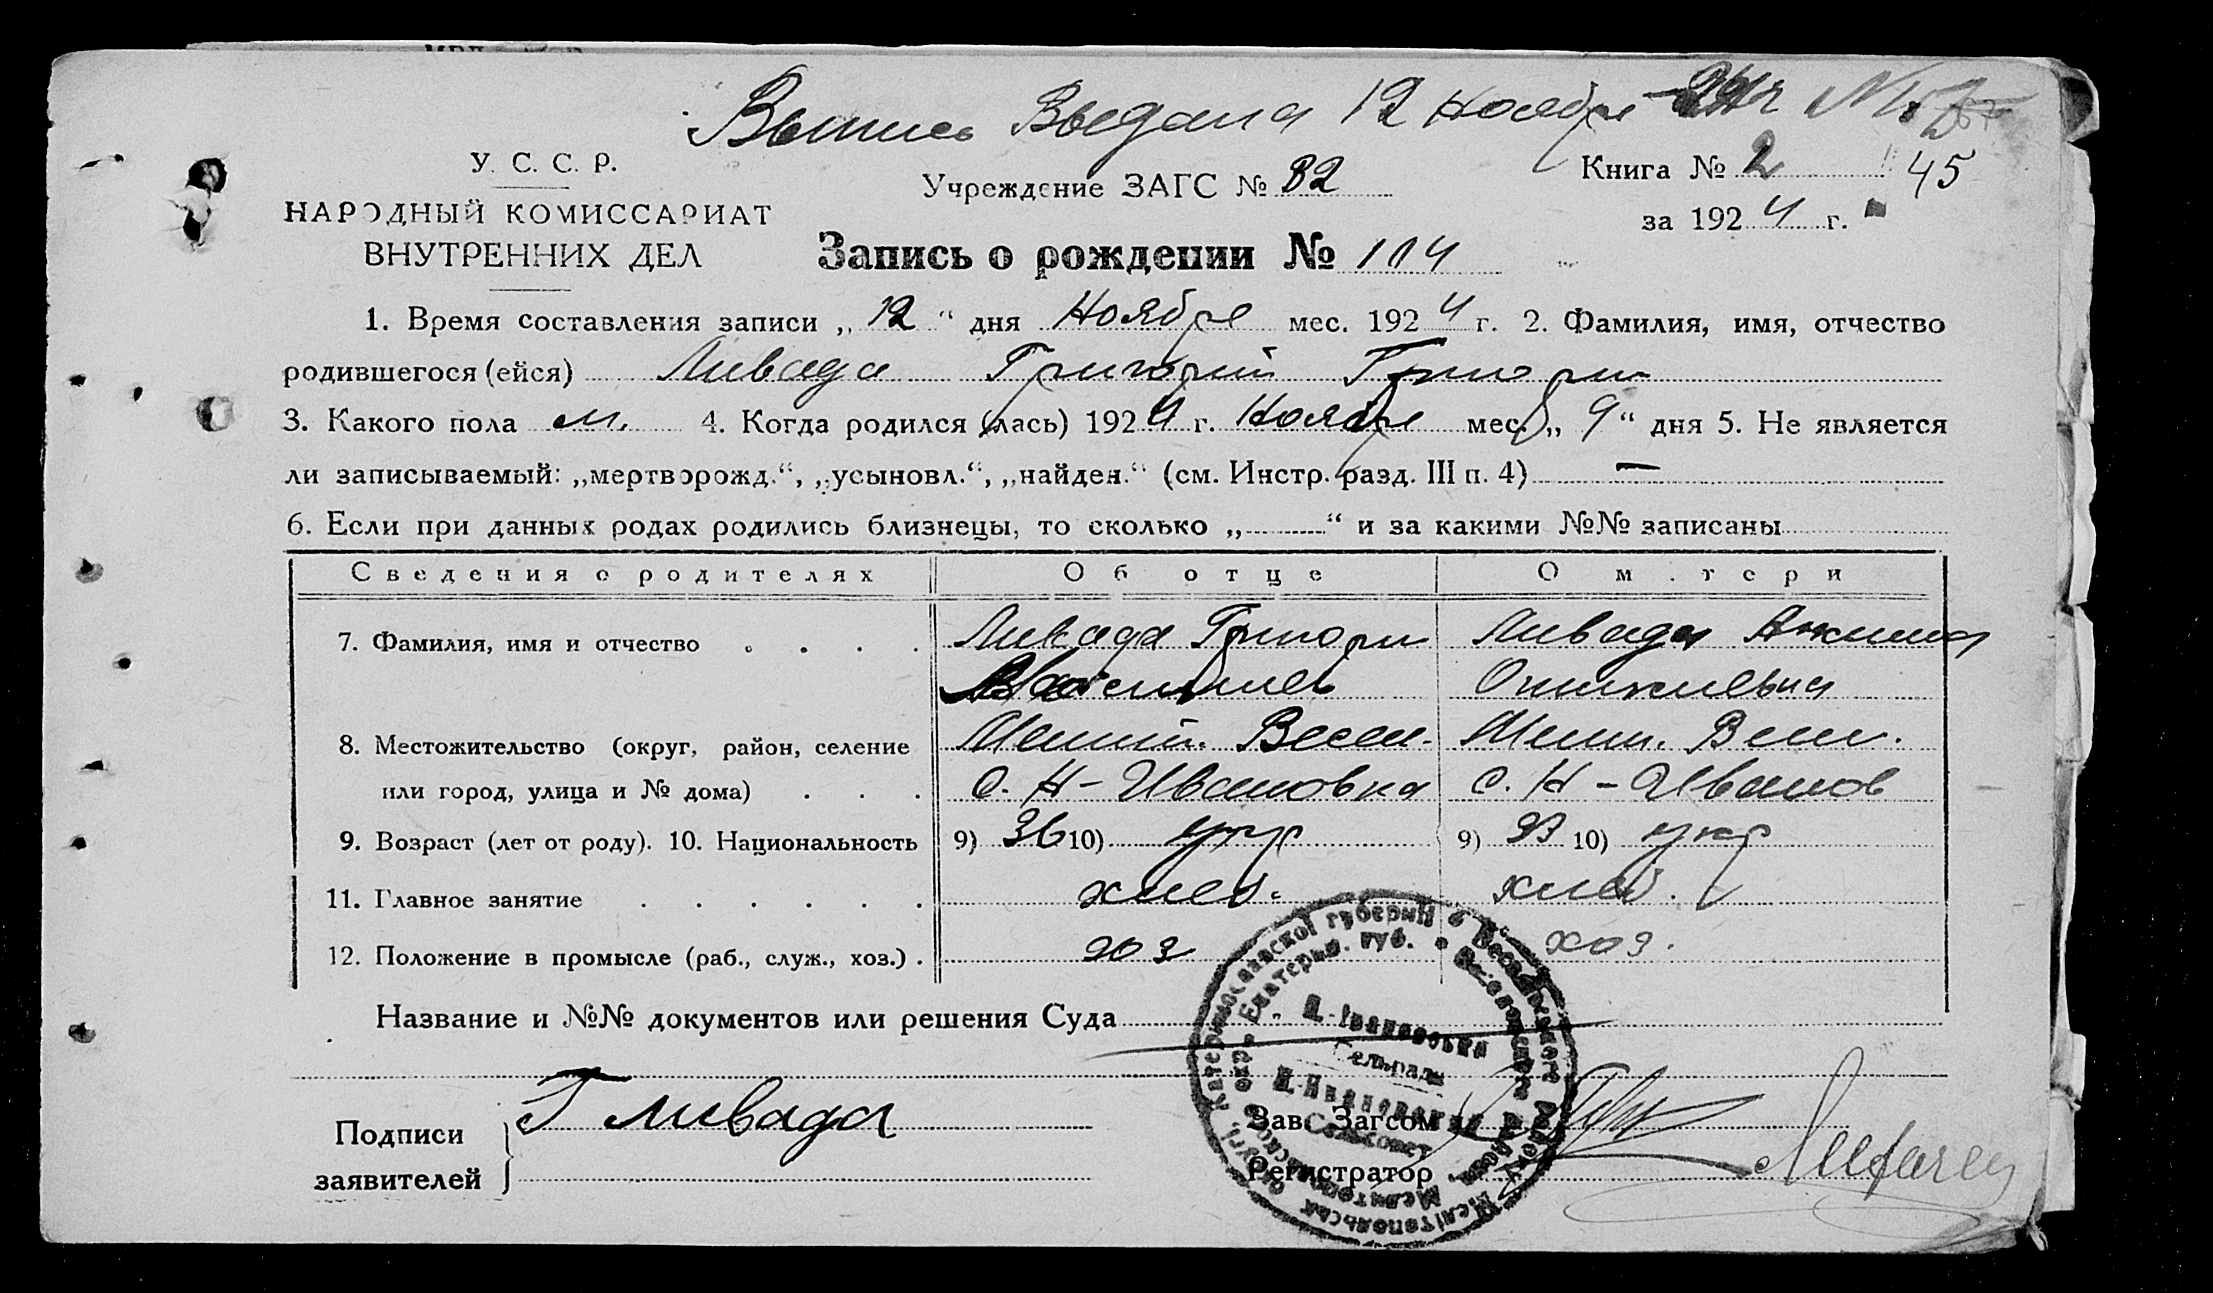 Выпись Выдана 12 Ноября 24 г №
У. С. С. Р.
НАРОДНЫЙ КОМИССАРИАТ
ВНУТРЕННИХ ДЕЛ
Учреждение ЗАГС № 82
Книга № 2 45
за 1924 г.
Запись о рождении № 114
1. Время составления записи „ 12 “ дня Ноября мес. 1924 г. 2. Фамилия, имя, отчество
родившегося (ейся) Ливада Григорий Григори
3. Какого пола м. 4. Когда родился (лась) 1924 г. Ноября мес. „ 9 “ дня 5. Не является
ли записываемый: „мертворожд.“, „усыновл.“, „найден.“ (см. Инстр. разд. III п. 4) —
6. Если при данных родах родились близнецы, то сколько „ “ и за какими №№ записаны
Сведения о родителях Об отце О матери
7. Фамилия, имя и отчество Ливада Григори Ливада
8. Местожительство (округ, район, селение Весел.
или город, улица и № дома) с. Н-Ивановка с. Н-Иванов
9. Возраст (лет от роду). 10. Национальность 9) 36 10) укр 9) 33 10) укр
11. Главное занятие хлеб. хлеб.
12. Положение в промысле (раб., служ., хоз.) хоз хоз.
Название и №№ документов или решения Суда
Подписи заявителей Г Ливада
Зав. Загсом
Регистратор
Катеринославської губерні Веселівського району Мелітопольськ округи
Екатерин. губ. Мелитопольского окр.
Н.-Івановська
Сельрада
Н.-Ивановский
Сельсовет